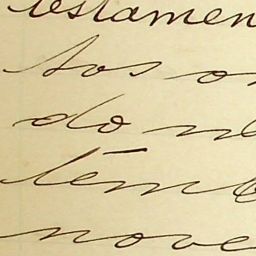 testamen
tos o
do n
têm
nove